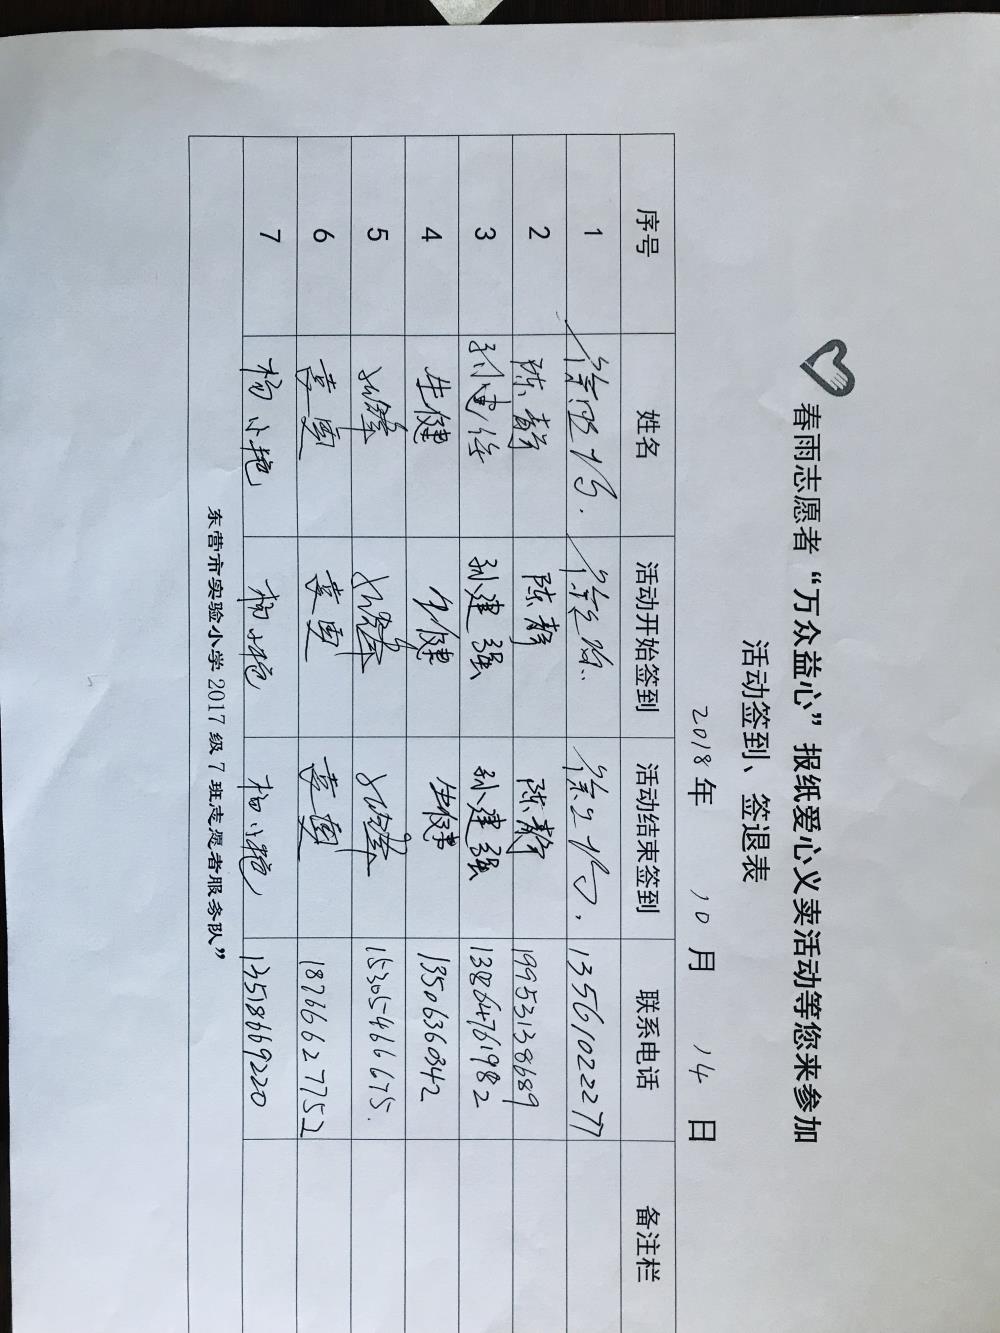 春雨志愿者“万众益心”报纸爱心义卖活动等您来参加
活动签到、签退表
2018年 10月 14日
序号 姓名 活动开始签到 活动结束签到 联系电话 备注栏
1 13561022277
2 陈静 陈静 陈静 19953138689
3 孙建强 孙建强 孙建强 13864761982
4 牛健 牛健 牛健 13506360342
5 15305466675.
6 袁圆 袁圆 袁圆 18766627752
7 杨小艳 杨小艳 杨小艳 13518669220
东营市实验小学2017级7班志愿者服务队”